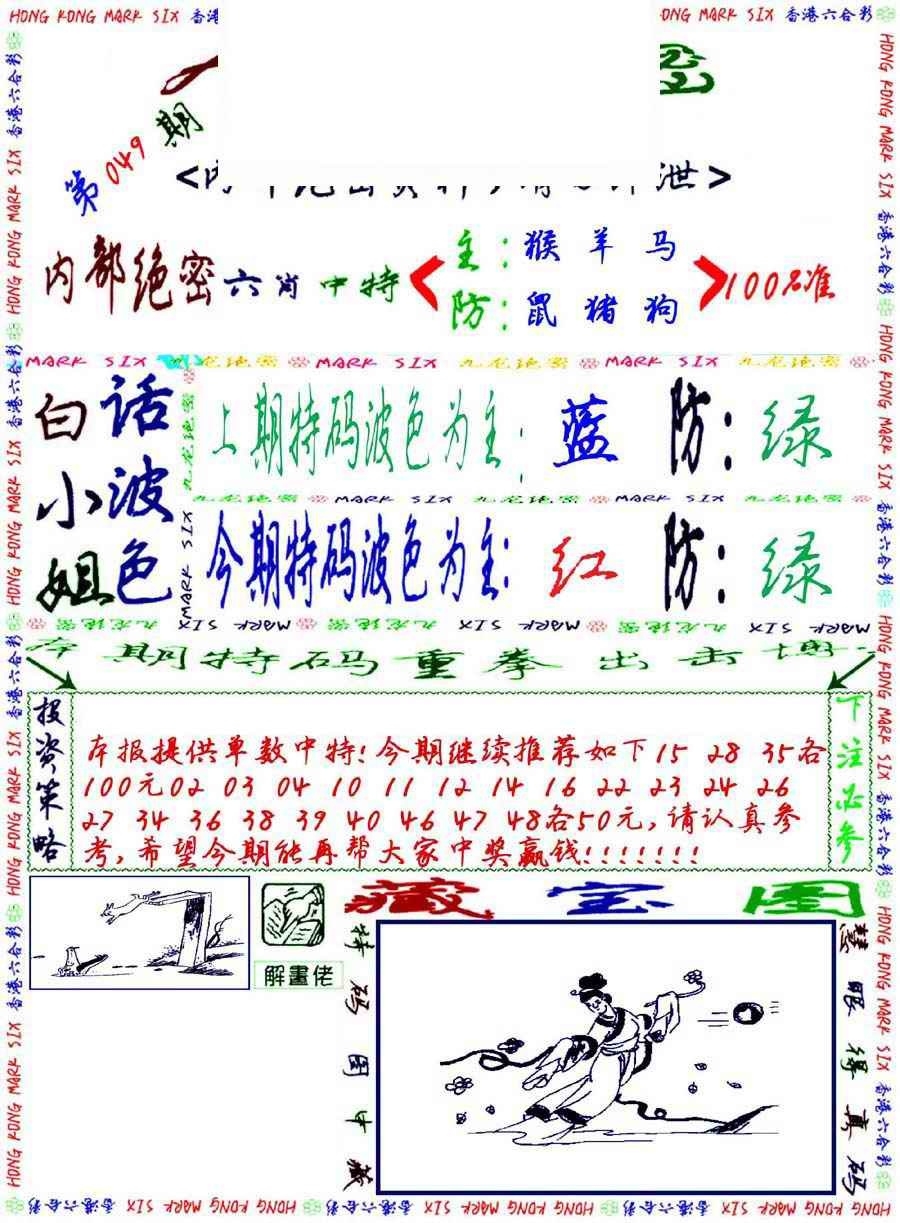 HONG KONG MARK SIX 香港六合彩
第049期
内部绝密六肖中特
主：猴 羊 马
防：鼠 猪 狗
100%准
MARK SIX 九龙绝密 MARK SIX 九龙绝密 MARK SIX 九龙绝密
白小姐
话波色
上期特码波色为主：蓝 防：绿
九龙绝密 MARK SIX 九龙绝密 MARK SIX 九龙绝密 MARK SIX
今期特码波色为主：红 防：绿
本期特码重拳出击
投资策略
本报提供单数中特！今期继续推荐如下15 28 35各
100元02 03 04 10 11 12 14 16 22 23 24 26
27 34 36 38 39 40 46 47 48各50元，请认真参
考，希望今期能再帮大家中奖赢钱！！！！！！！
下注必参
藏宝图
解畫佬
特码图中藏
慧眼得真码
HONG KONG MARK SIX 香港六合彩